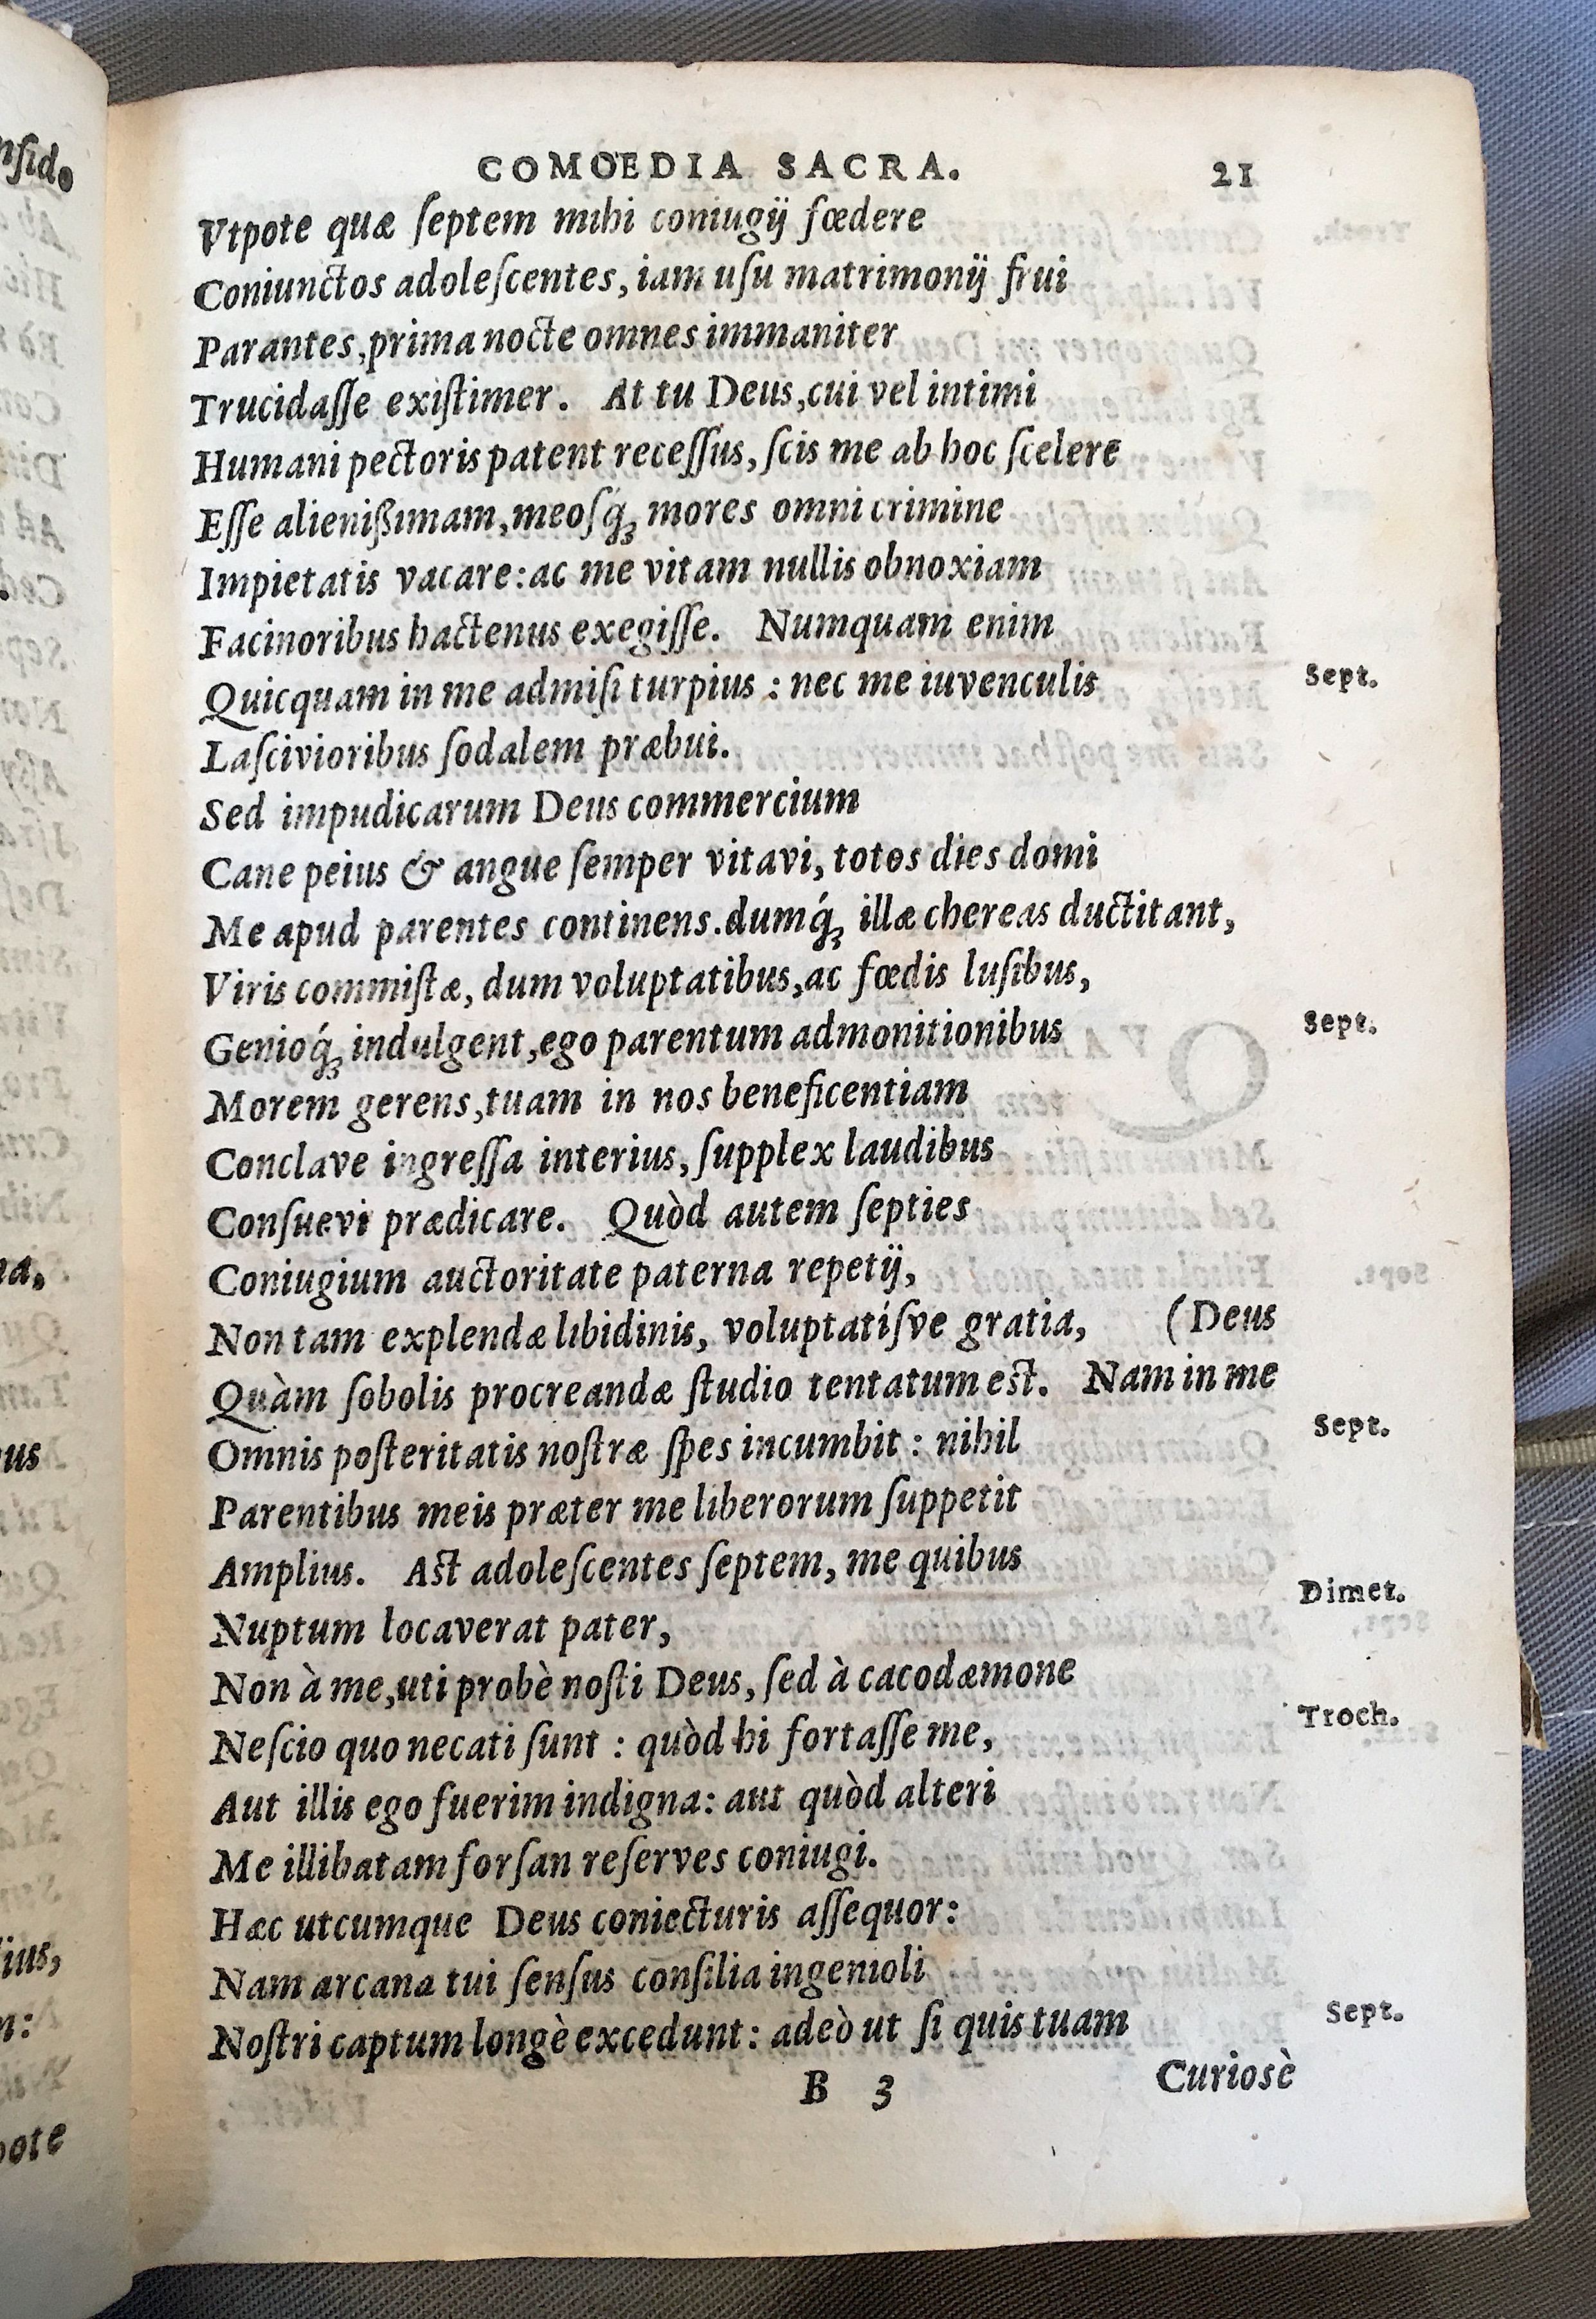 COMOEDIA SACRA. 21
Vtpote quæ ſeptem mihi coniugij fœdere
Coniunctos adoleſcentes, iam uſu matrimonij frui
Parantes, prima nocte omnes immaniter
Trucidaſſe exiſtimer. At tu Deus, cui vel intimi
Humani pectoris patent receſſus, ſcis me ab hoc ſcelere
Eſſe alienißimam, meoſq́ꝫ mores omni crimine
Impietatis vacare: ac me vitam nullis obnoxiam
Facinoribus hactenus exegiſſe. Numquam enim
Quicquam in me admiſi turpius : nec me iuvenculis Sept.
Laſcivioribus ſodalem præbui.
Sed impudicarum Deus commercium
Cane peius & angue ſemper vitavi, totos dies domi
Me apud parentes continens. dumq́ꝫ illæ chereas ductitant,
Viris commiſtæ, dum voluptatibus, ac fœdis luſibus,
Genioq́ꝫ indulgent, ego parentum admonitionibus Sept.
Morem gerens, tuam in nos beneficentiam
Conclave ingreſſa interius, ſupplex laudibus
Conſuevi prædicare. Quòd autem ſepties
Coniugium auctoritate paterna repetij,
Non tam explendæ libidinis, voluptatíſve gratia, (Deus
Quàm ſobolis procreandæ ſtudio tentatum est. Nam in me
Omnis poſteritatis noſtræ ſpes incumbit : nihil Sept.
Parentibus meis præter me liberorum ſuppetit
Amplius. Ast adoleſcentes ſeptem, me quibus
Nuptum locaverat pater, Dimet.
Non à me, uti probè noſti Deus, ſed à cacodæmone
Neſcio quo necati ſunt : quòd hi fortaſſe me, Troch.
Aut illis ego fuerim indigna: aut quòd alteri
Me illibatam forſan reſerves coniugi.
Hæc utcumque Deus coniecturis aſſequor:
Nam arcana tui ſenſus conſilia ingenioli
Noſtri captum longè excedunt : adeò ut ſi quis tuam Sept.
B 3 Curiosè